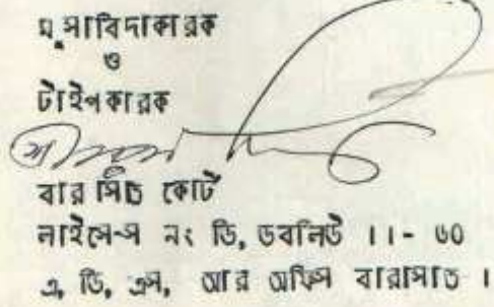 মুসাবিদাকারক
ও
টাইপকারক
বারাসাত কোর্ট
লাইসেন্স নং ডি, ডবলিউ ।।- ৬০
এ, ডি, এস, আর অফিস বারাসাত ।